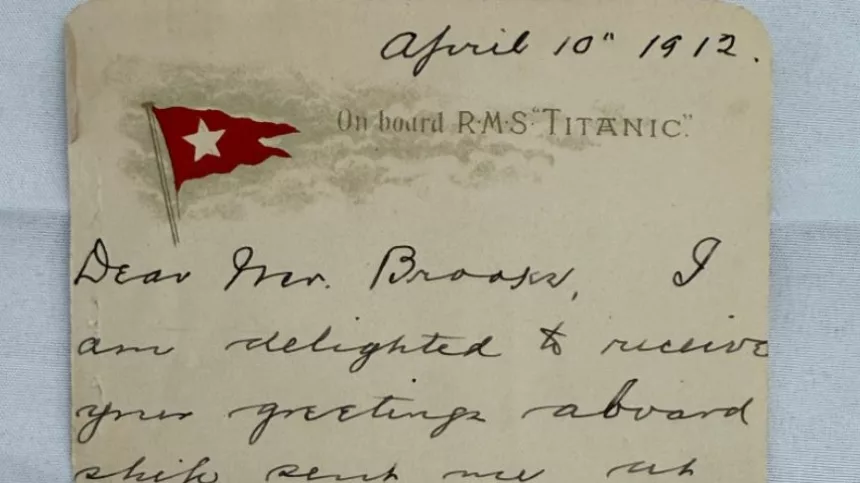 April 10" 1912.
On board R·M·S· "TITANIC".
Dear Mr. Brooks, I
am delighted to receive
your greetings aboard
ship sent me at